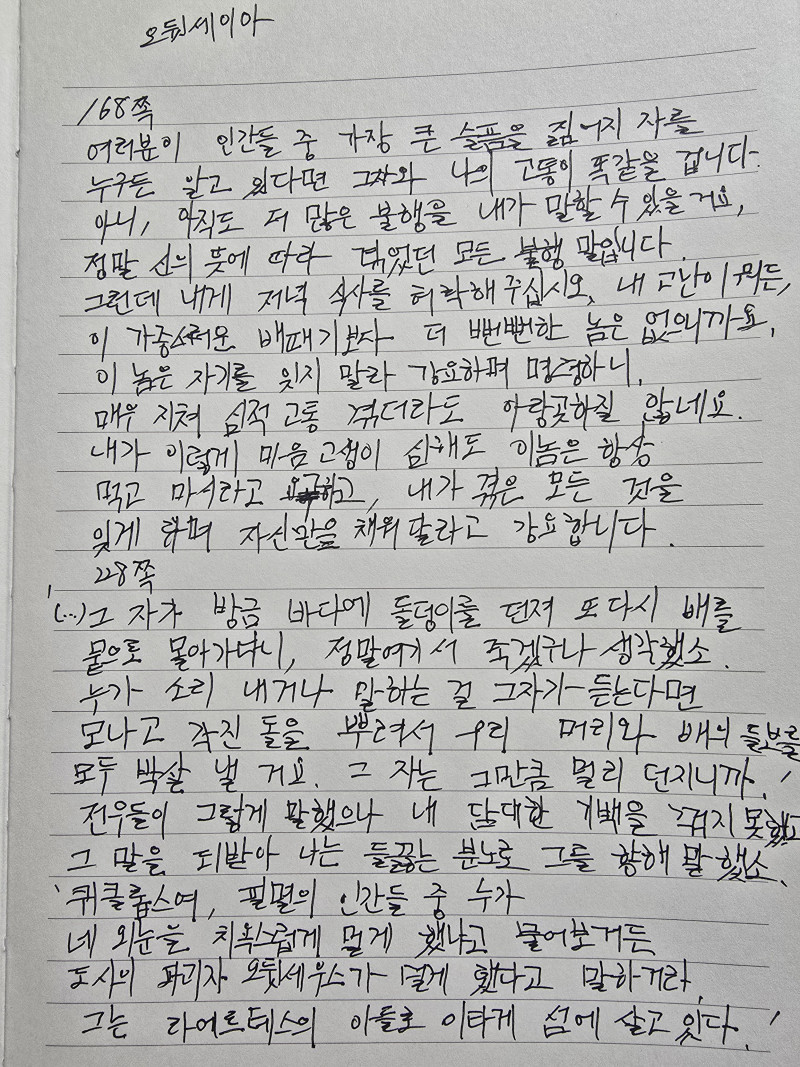 오뒷세이아
168쪽
여러분이 인간들 중 가장 큰 슬픔을 짊어지 자를
누구든 알고 있다면 그자와 나의 고통이 똑같을 겁니다.
아니, 아직도 더 많은 불행을 내가 말할 수 있을 거요,
정말 신의 뜻에 따라 겪었던 모든 불행 말입니다.
그런데 내게 저녁 식사를 허락해 주십시오, 내 고난이 뭐든,
이 가증스러운 배때기보다 더 뻔뻔한 놈은 없으니까요,
이 놈은 자기를 잊지 말라 강요하며 명령하니,
매우 지쳐 심적 고통 겪더라도 아랑곳하질 않네요.
내가 이렇게 마음 고생이 심해도 이놈은 항상
먹고 마시라고 요구하고, 내가 겪은 모든 것을
잊게 하며 자신만을 채워 달라고 강요합니다.
228쪽
'(...) 그 자가 방금 바다에 돌덩이를 던져 또 다시 배를
뭍으로 몰아가다니, 정말 여기서 죽겠구나 생각했소.
누가 소리 내거나 말하는 걸 그자가 듣는다면
모나고 각진 돌을 뿌려서 우리 머리와 배의 들보를
모두 박살 낼 거요. 그 자는 그만큼 멀리 던지니까.'
전우들이 그렇게 말했으나 내 담대한 기백을 꺾지 못했소
그 말을 되받아 나는 들끓는 분노로 그를 향해 말했소.
'퀴클롭스여, 필멸의 인간들 중 누가
네 외눈을 치욕스럽게 멀게 했냐고 물어보거든
도시의 파괴자 오뒷세우스가 멀게 했다고 말하거라,
그는 라에르테스의 아들로 이타케 섬에 살고 있다.'